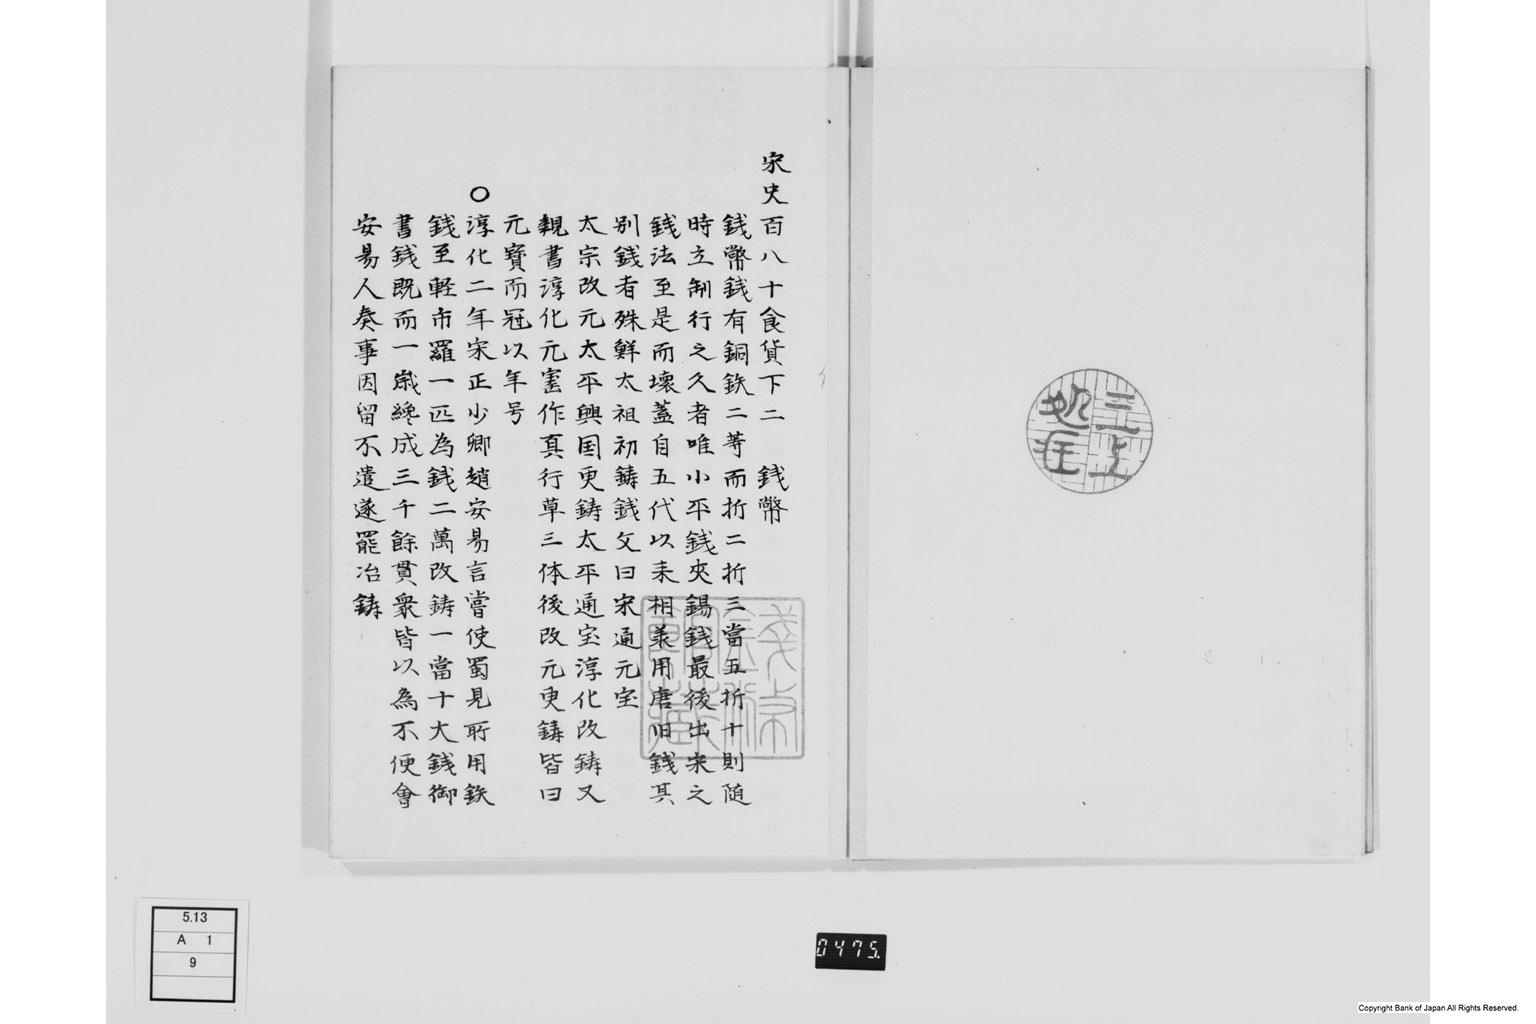 宋史百八十食貨下二　錢幣
錢幣錢有銅鉄二等而折二折三當五折十則随
時立制行之久者唯小平錢夾錫錢最後出宋之
錢法至是而壊蓋自五代以来相承用唐旧錢其
別錢者殊鮮太祖初鋳錢文曰宋通元宝
太宗改元太平興国更鋳太平通宝淳化改鋳又
親書淳化元寳作真行草三体後改元更鋳皆曰
元寶而冠以年号
○淳化二年宋正少卿趙安易言嘗使蜀見所用鉄
錢至軽市羅一匹為錢二萬改鋳一當十大錢御
書錢既而一歳纔成三千餘貫衆皆以為不便會
安易人奏事因留不遣遂罷冶鋳
三上
処在
錢幣
館
蔵
5.13
A 1
9
0475.
Copyright Bank of Japan All Rights Reserved.